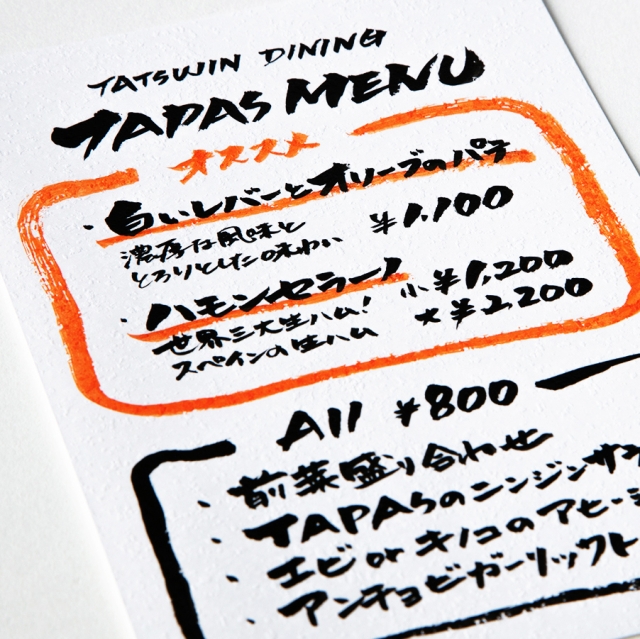 TATSUIN DINING
TAPAS MENU
オススメ
・白いレバーとオリーブのパテ
濃厚な風味と
とろりとした味わい
¥1,100
・ハモンセラーノ
世界三大生ハム!
スペインの生ハム
小 ¥1,200
大 ¥2,200
All ¥800
・前菜盛り合わせ
・TAPASのニンジンサラ
・エビorキノコのアヒージ
・アンチョビガーリックト